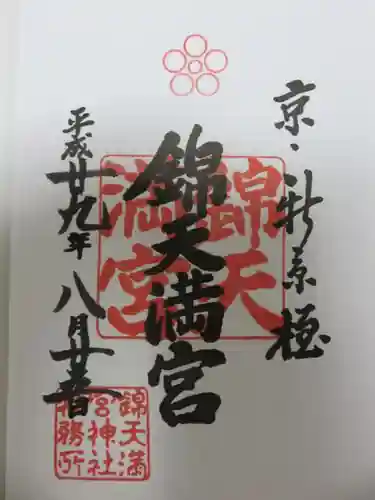 京・新京極
錦天満宮
平成廿九年 八月廿日
錦天
満宮
錦天満
宮神社
社務所